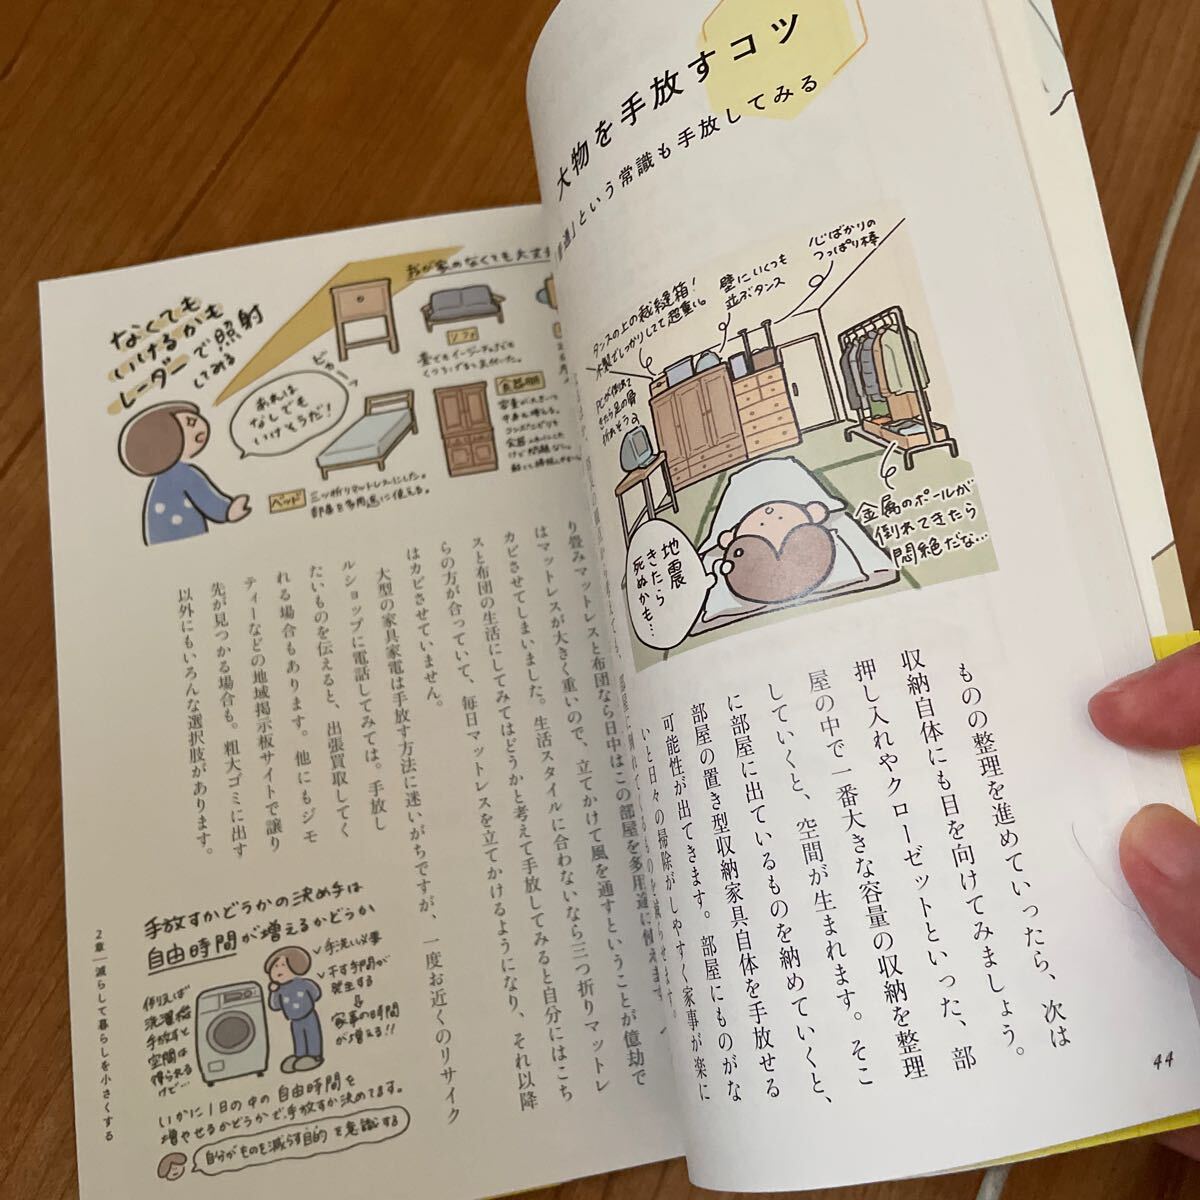 大物を手放すコツ
という常識も手放してみる
心ばかりの
つっぱり棒
壁にいくつも
並ぶタンス
タンスの上の裁縫箱!
木製でしっかりしてて超重い。
PCが倒れて
きたら足の骨
折れそう
金属のポールが
倒れてきたら
悶絶だな…
地震
きたら
死ぬかも…
ものの整理を進めていったら、次は
収納自体にも目を向けてみましょう。
押し入れやクローゼットといった、部
屋の中で一番大きな容量の収納を整理
していくと、空間が生まれます。そこ
に部屋に出ているものを納めていくと、
部屋の置き型収納家具自体を手放せる
可能性が出てきます。部屋にものがな
いと日々の掃除がしやすく家事が楽に
44
我が家のなくても大丈夫
なくても
いけるかも
レーダーで照射
してみる
ピカーッ
あれは
なしでも
いけそうだ!
ソファ
食器棚
ベッド
三ツ折りマットレスにした。
部屋を多用途に使える。
り畳みマットレスと布団なら日中はこの部屋を多用途に使えます
はマットレスが大きく重いので、立てかけて風を通すということが億劫で
カビさせてしまいました。生活スタイルに合わないなら三つ折りマットレ
スと布団の生活にしてみてはどうかと考えて手放してみると自分にはこち
らの方が合っていて、毎日マットレスを立てかけるようになり、それ以降
はカビさせていません。
大型の家具家電は手放す方法に迷いがちですが、一度お近くのリサイク
ルショップに電話してみては。手放し
たいものを伝えると、出張買取してく
れる場合もあります。他にもジモ
ティーなどの地域掲示板サイトで譲り
先が見つかる場合も。粗大ゴミに出す
以外にもいろんな選択肢があります。
手放すかどうかの決め手は
自由時間が増えるかどうか
手洗い必要
干す手間が
発生する
家事の時間
が増える!!
例えば
洗濯機
手放すと
空間は
得られる
けど…
いかに1日の中の自由時間を
増やせるかどうかで手放すか決めてます。
自分がものを減らす目的を意識する
2章 減らして暮らしを小さくする